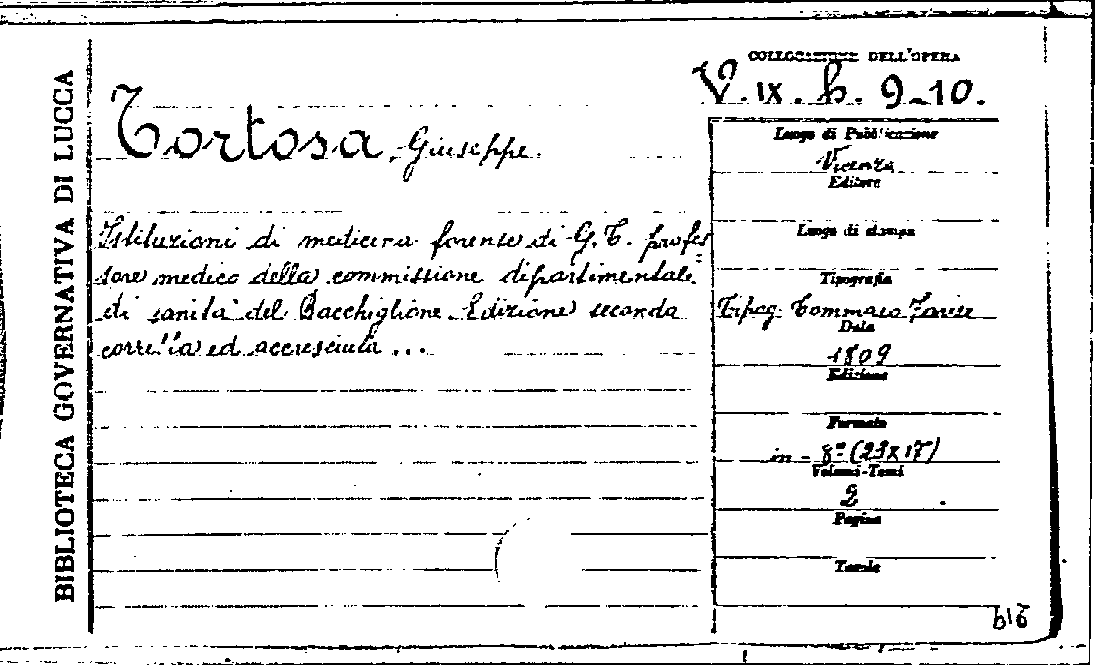 BIBLIOTECA GOVERNATIVA DI LUCCA
COLLOCAZIONE DELL'OPERA
V. IX. b. 9-10.
Tortosa, Giuseppe.
Istituzioni di medicina forense di G. T. profes=
sore medico della commissione dipartimentale
di sanità del Bacchiglione. Edizione seconda
corretta ed accresciuta ...
Luogo di Pubblicazione
Vicenza
Editore
Luogo di stampa
Tipografia
Tipog. Tommaso Parise
Data
1809
Edizione
Formato
in - 8º (23x17)
Volumi-Tomi
2
Pagine
Tavole